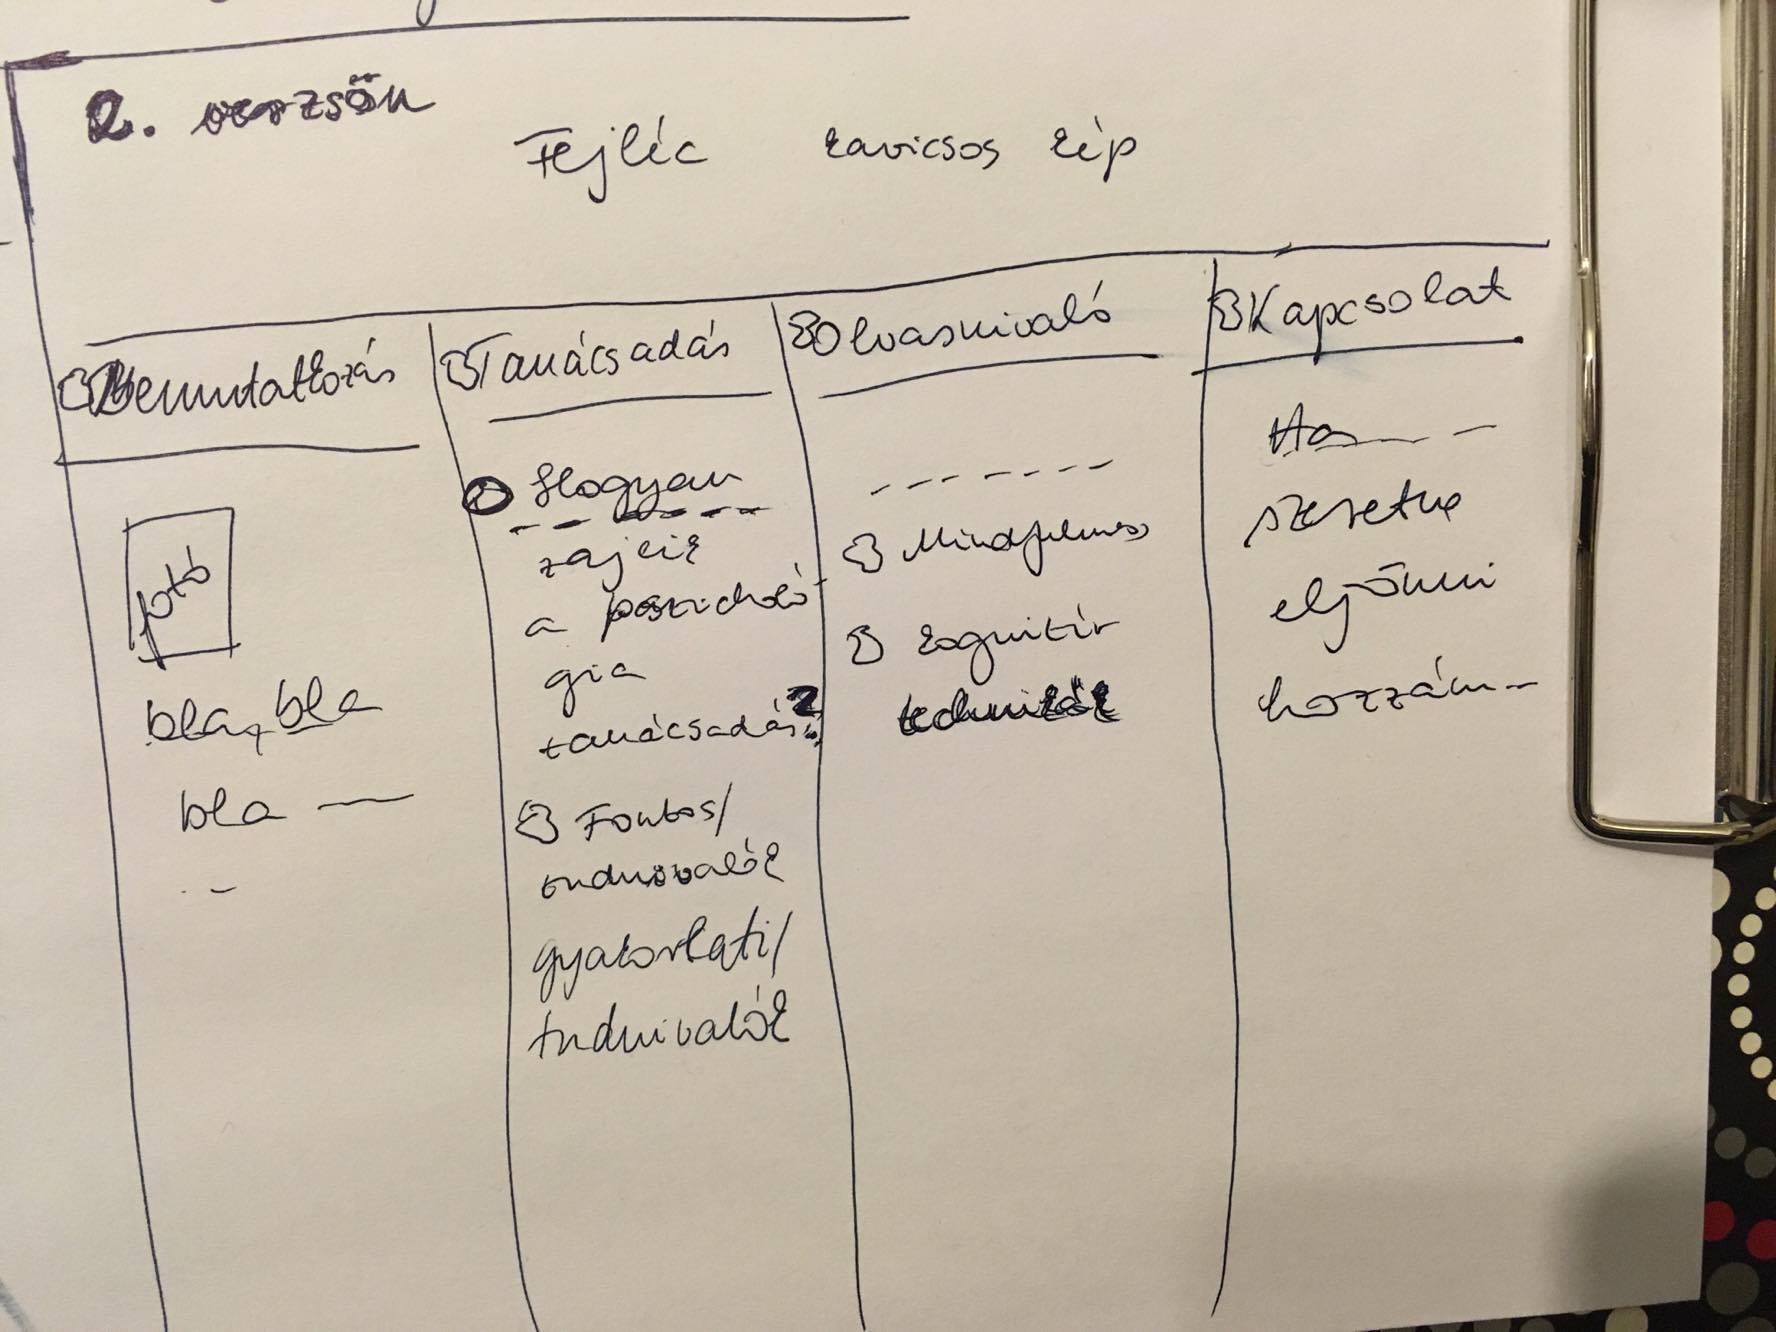 2. verzsön
Fejléc kavicsos kép
Bemutatkozás
fotó
bla, bla
bla
Tanácsadás
Hogyan
zajlik
a pszicholó
gia
tanácsadás?
Fontos/
tudnivalók
gyakorlati/
tudnivalók
Olvasnivaló
Mindfulness
kognitív
technikák
Kapcsolat
Ha
szeretne
eljönni
hozzám